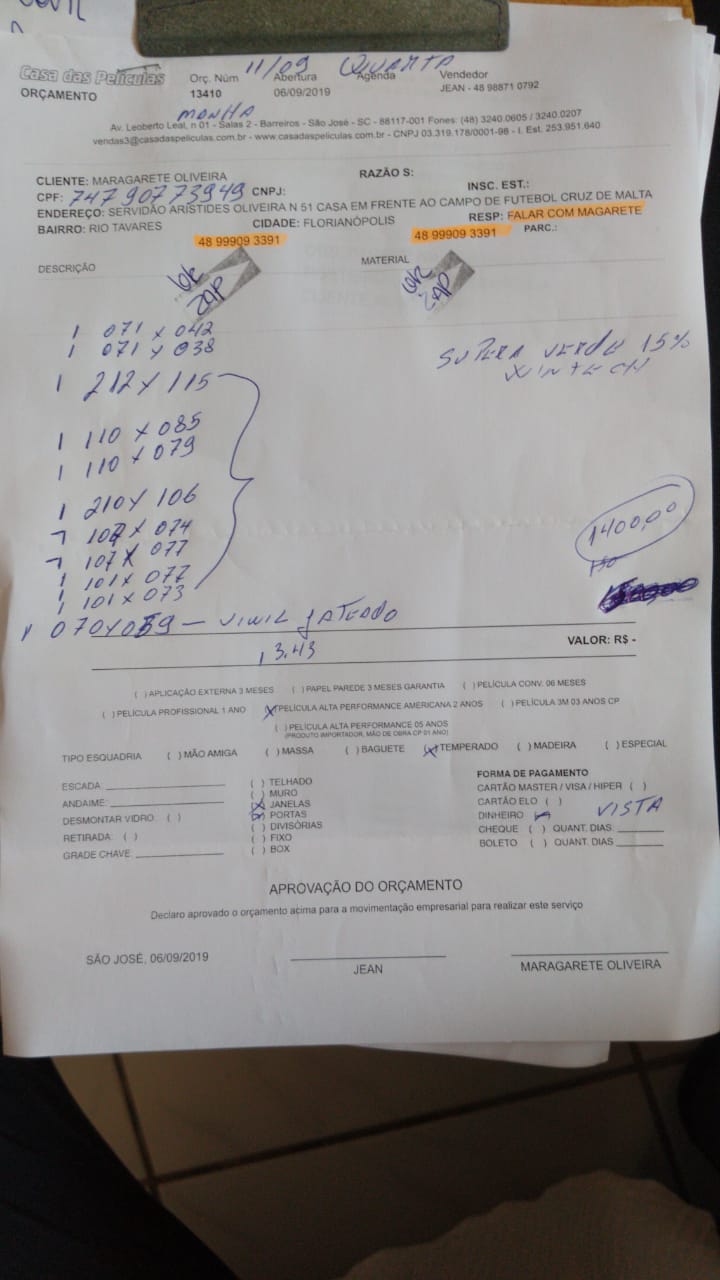 11/09 QUARTA
Casa das Películas Orç. Núm Abertura Agenda Vendedor
ORÇAMENTO 13410 06/09/2019 JEAN - 48 98871 0792
MANHA
Av. Leoberto Leal, n 01 - Salas 2 - Barreiros - São José - SC - 88117-001 Fones: (48) 3240.0605 / 3240.0207
vendas3@casadaspeliculas.com.br - www.casadaspeliculas.com.br - CNPJ 03.319.178/0001-98 - I. Est. 253.951.640
CLIENTE: MARAGARETE OLIVEIRA RAZÃO S:
CPF: 74790773949 CNPJ: INSC. EST.:
ENDEREÇO: SERVIDÃO ARÍSTIDES OLIVEIRA N 51 CASA EM FRENTE AO CAMPO DE FUTEBOL CRUZ DE MALTA
BAIRRO: RIO TAVARES CIDADE: FLORIANÓPOLIS RESP: FALAR COM MAGARETE PARC.:
48 99909 3391 48 99909 3391
DESCRIÇÃO MATERIAL
OK ZAP OK ZAP
1 071 x 042
1 071 x 038
SUPERA VERDE 15%
WINTECH
1 212 x 115
1 110 x 085
1 110 x 079
1 210 x 106
1 107 x 074
1 107 x 077
1 101 x 077
1 101 x 073
1400,00
150
1 070 x 059 - VINIL JATEADO
VALOR: R$ -
13.43
( ) APLICAÇÃO EXTERNA 3 MESES ( ) PAPEL PAREDE 3 MESES GARANTIA ( ) PELÍCULA CONV. 06 MESES
( ) PELÍCULA PROFISSIONAL 1 ANO (X) PELÍCULA ALTA PERFORMANCE AMERICANA 2 ANOS ( ) PELÍCULA 3M 03 ANOS CP
( ) PELÍCULA ALTA PERFORMANCE 05 ANOS
(PRODUTO IMPORTADOR, MÃO DE OBRA CP 01 ANO)
TIPO ESQUADRIA ( ) MÃO AMIGA ( ) MASSA ( ) BAGUETE (X) TEMPERADO ( ) MADEIRA ( ) ESPECIAL
ESCADA:
ANDAIME:
DESMONTAR VIDRO: ( )
RETIRADA: ( )
GRADE CHAVE:
( ) TELHADO
( ) MURO
(X) JANELAS
(X) PORTAS
( ) DIVISÓRIAS
( ) FIXO
( ) BOX
FORMA DE PAGAMENTO
CARTÃO MASTER / VISA / HIPER ( )
CARTÃO ELO ( )
DINHEIRO (X) VISTA
CHEQUE ( ) QUANT. DIAS
BOLETO ( ) QUANT. DIAS
APROVAÇÃO DO ORÇAMENTO
Declaro aprovado o orçamento acima para a movimentação empresarial para realizar este serviço
SÃO JOSÉ, 06/09/2019
JEAN MARAGARETE OLIVEIRA